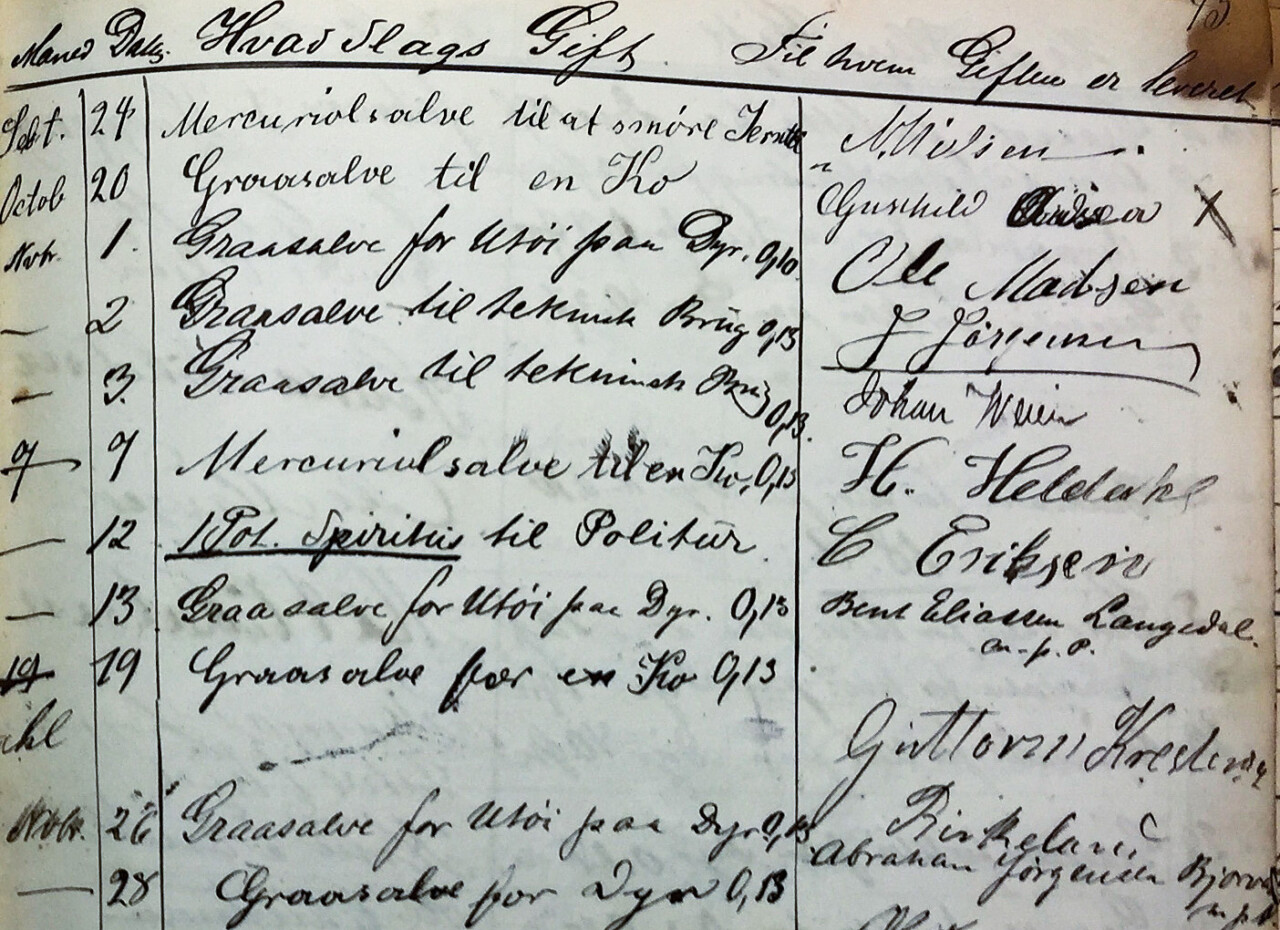 73.
Maned Dato. Hvad Slags Gift. Til hvem Giften er leveret
Sebt. 24 Mercurialsalve til at smöre N. Nielsen
Octob 20 Graasalve til en Ko Gunhild X
Nvbr. 1. Graasalve for Utöi paa Dyr. 0,10 Ole Madsen
— 2 Graasalve til teknisk Brug 0,13 J Jörgensen
— 3. Graasalve til teknisk Brug 0,13. Johan
9 9 Mercurialsalve til en Ko, 0,13 H.
— 12 1 Pot. Spiritus til Politur C Eriksen
— 13 Graasalve for Utöi paa Dyr. 0,13 Bent Eliassen Langedal.
m.p.P.
19 19 Graasalve for en Ko 0,13
Guttorm
Nvbr. 26 Graasalve for Utöi paa Dyr 0,13 Birkeland
— 28 Graasalve for Dyr 0,13 Abraham Jörgensen